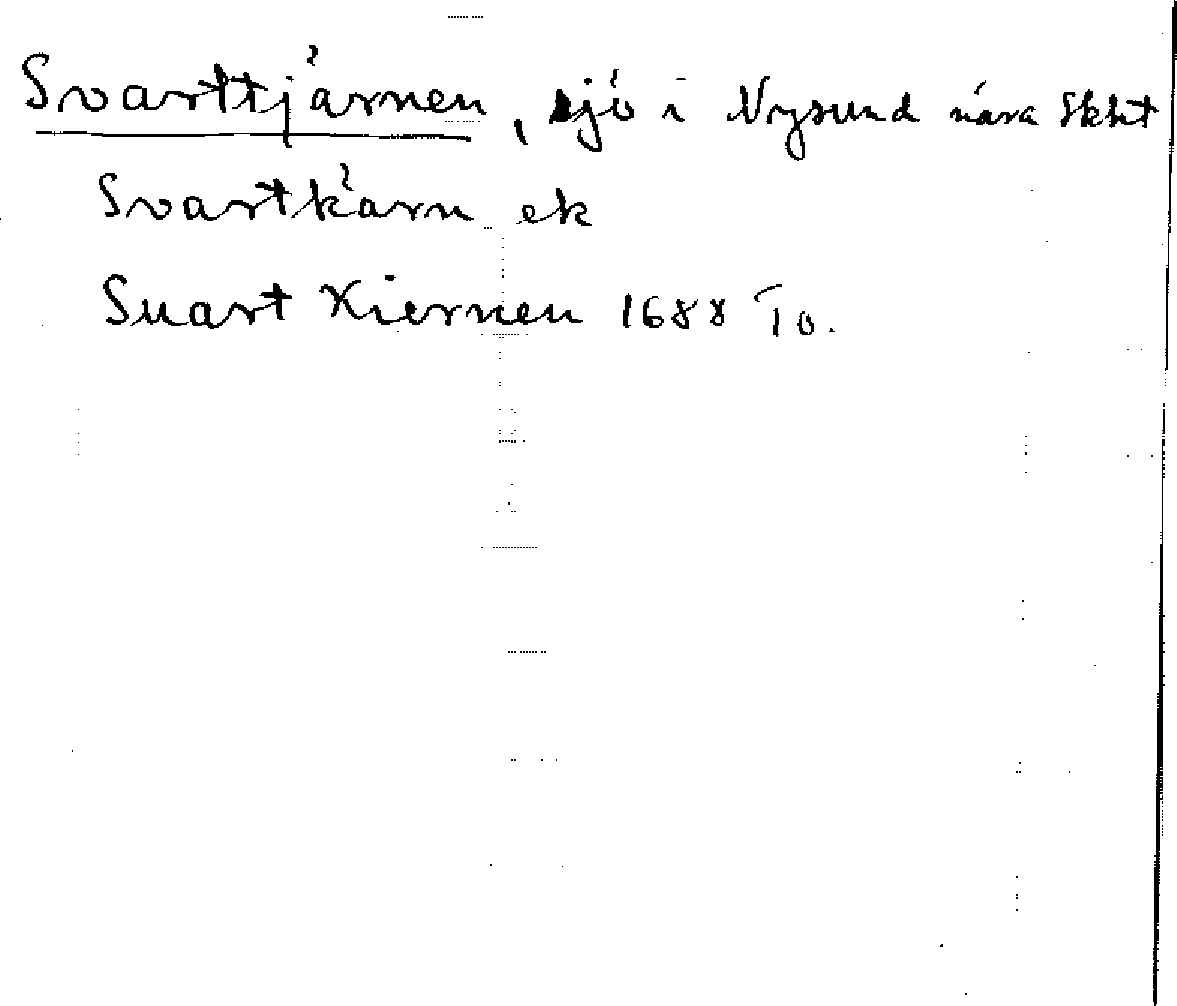 Svarttjärnen, sjö i Nysund nära Skht
Svartkärn ek
Suart Kiernen 1688 To.